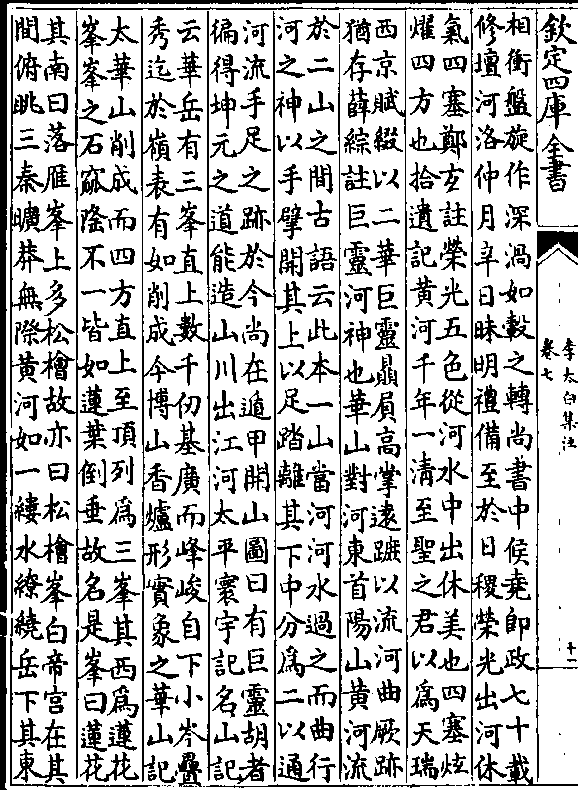 欽定四庫全書
李太白集注
卷七
十一
相衝盤旋作深渦如轂之轉尚書中候堯即政七十載
修壇河洛仲月辛日昧明禮備至於日稷榮光出河休
氣四塞鄭玄註榮光五色從河水中出休美也四塞炫
燿四方也拾遺記黄河千年一清至聖之君以為天瑞
西京賦綴以二華巨靈贔屓高掌逺蹠以流河曲厥跡
猶存薛綜註巨靈河神也華山對河東首陽山黄河流
於二山之間古語云此本一山當河河水過之而曲行
河之神以手擘開其上以足踏離其下中分為二以通
河流手足之跡於今尚在遁甲開山圖曰有巨靈胡者
徧得坤元之道能造山川出江河太平寰宇記名山記
云華岳有三峯直上數千仞基廣而峰峻自下小岑疊
秀迄於嶺表有如削成今博山香爐形實象之華山記
太華山削成而四方直上至頂列為三峯其西為蓮花
峯峯之石窳隆不一皆如蓮葉倒垂故名是峯曰蓮花
其南曰落雁峯上多松檜故亦曰松檜峯白帝宮在其
間俯眺三秦曠莽無際黄河如一縷水繚繞岳下其東